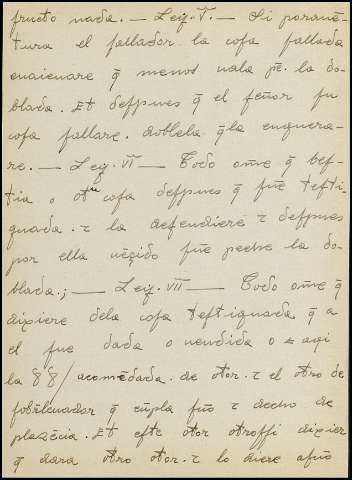 fructo nada. — Ley. V. — Si poruẽ-
tura el fallador la cosa fallada
enaienare q̃ menos uala pẽ. la do-
blada. Et despues q̃ el señor su
cosa fallare. dobblela q̃la enquera-
re. — Ley. VI — Todo ome q̃ bes-
tia o otra cosa despues q̃ fuẽ testi-
guada. τ la defendierẽ τ despues
por ella uẽçido fuẽ peche la do-
blada.; — Ley. VII — Todo ome q̃
dixiere dela cosa testiguada q̃ a
el fue dada o uendida o
la / acomẽdada. de otor. τ el otro de
q̃ cũpla fuõ τ decho de
plazẽcia. Et este otor otrossi dixier
q̃ dara otro otor. τ lo diere afuõ